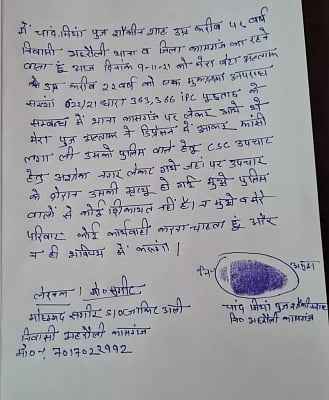 मैं चांद मियां पुत्र शौकीन शाह उम्र करीब 45 वर्ष
निवासी अहरौली थाना व जिला कासगंज का रहने
वाला हूं आज दिनांक 9-11-21 को मेरा बेटा अल्ताफ
को उम्र करीब 22 वर्ष को एक मुकदमा अपराध
संख्या 622/21 धारा 363, 366 IPC पूछताछ के
सम्बन्ध में थाना कासगंज पर लेकर आये थे
मेरा पुत्र अल्ताफ ने डिप्रेशन में आकर फांसी
लगा ली उसको पुलिस वाले हेतु CSC उपचार
हेतु अशोक नगर लेकर गये जहां पर उपचार
के दौरान उसकी मृत्यु हो गई मुझे पुलिस
वालों से कोई शिकायत नहीं है। न मुझे व मेरे
परिवार कोई कार्यवाही करना चाहता हूं और
न ही भविष्य में करूंगा।
लेखक। मो० सगीर
मोहम्मद सगीर S/O जाकिर अली
निवासी अहरौली कासगंज
मो०-: 7017022992
नि० अंगूठा
चांद मियां पुत्र
नि० अहरौली कासगंज